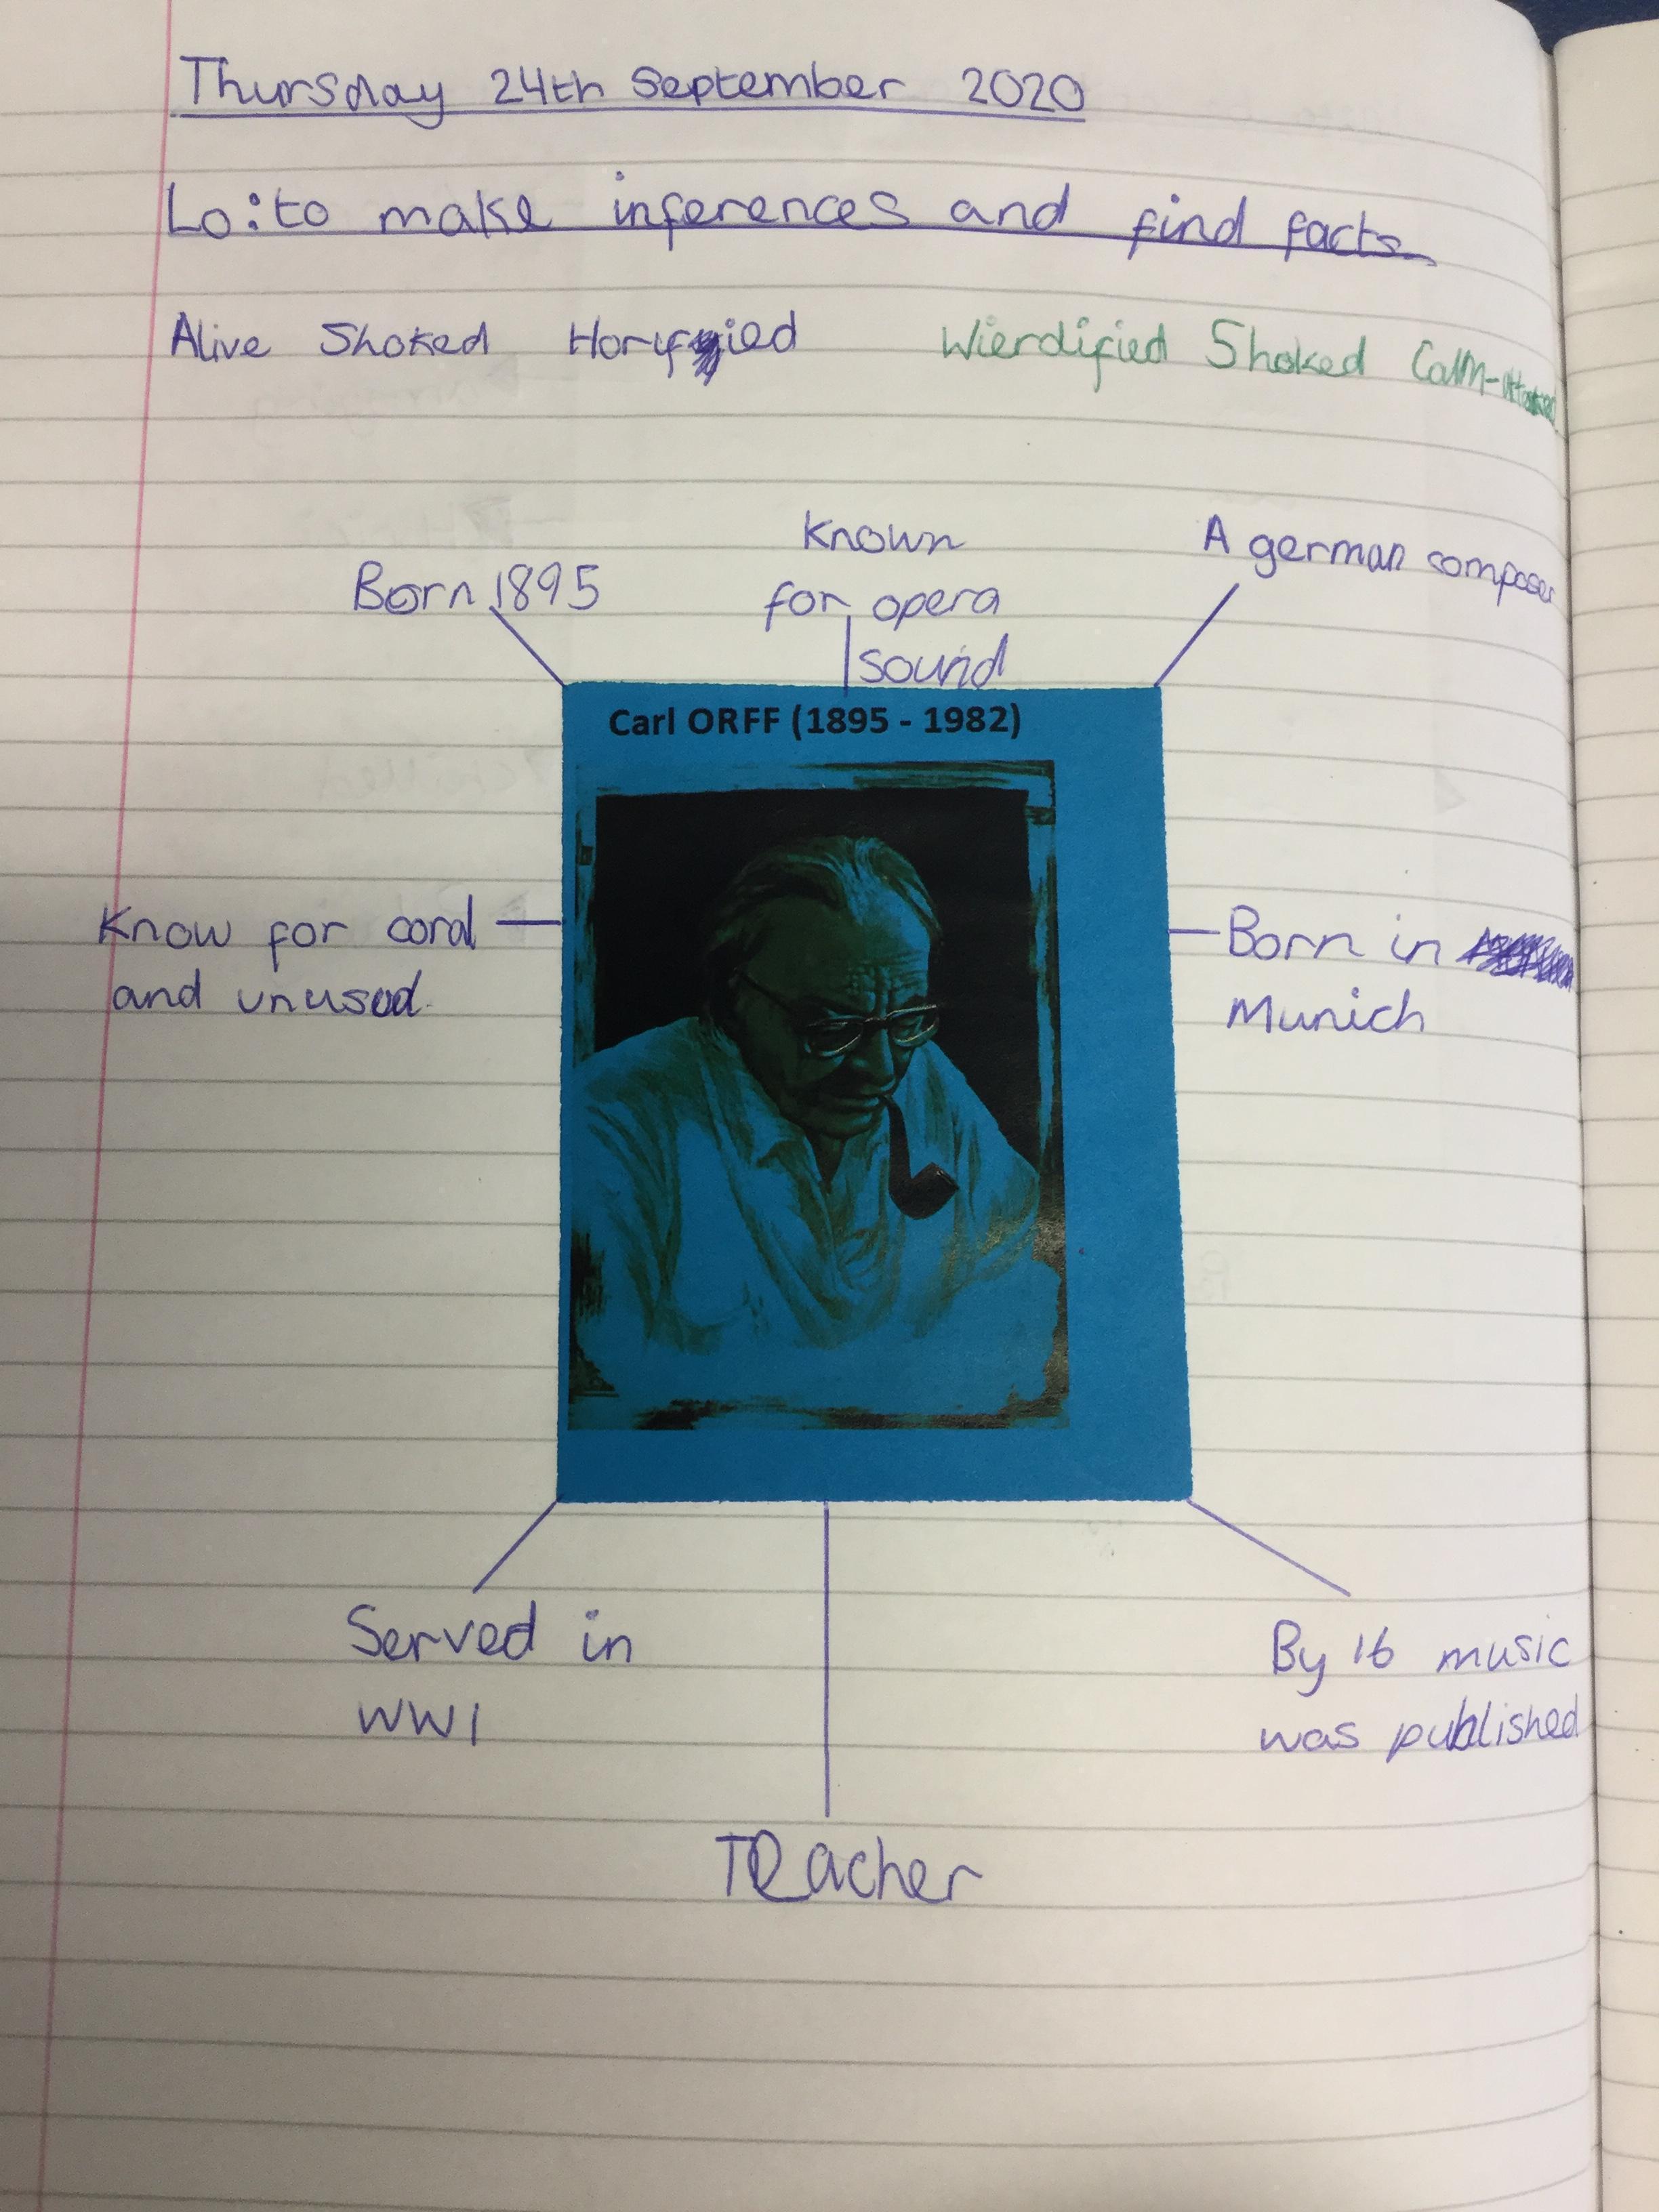 Thursday 24th September 2020
Lo: to make inferences and find facts
Alive Shoked Wierdified Shoked Calm-
Known
for opera
sound
Born 1895
A german composer
Carl ORFF (1895 - 1982)
Know for coral
and unusod.
Born in
Munich
Served in
WW1
By 16 music
was published
Teacher